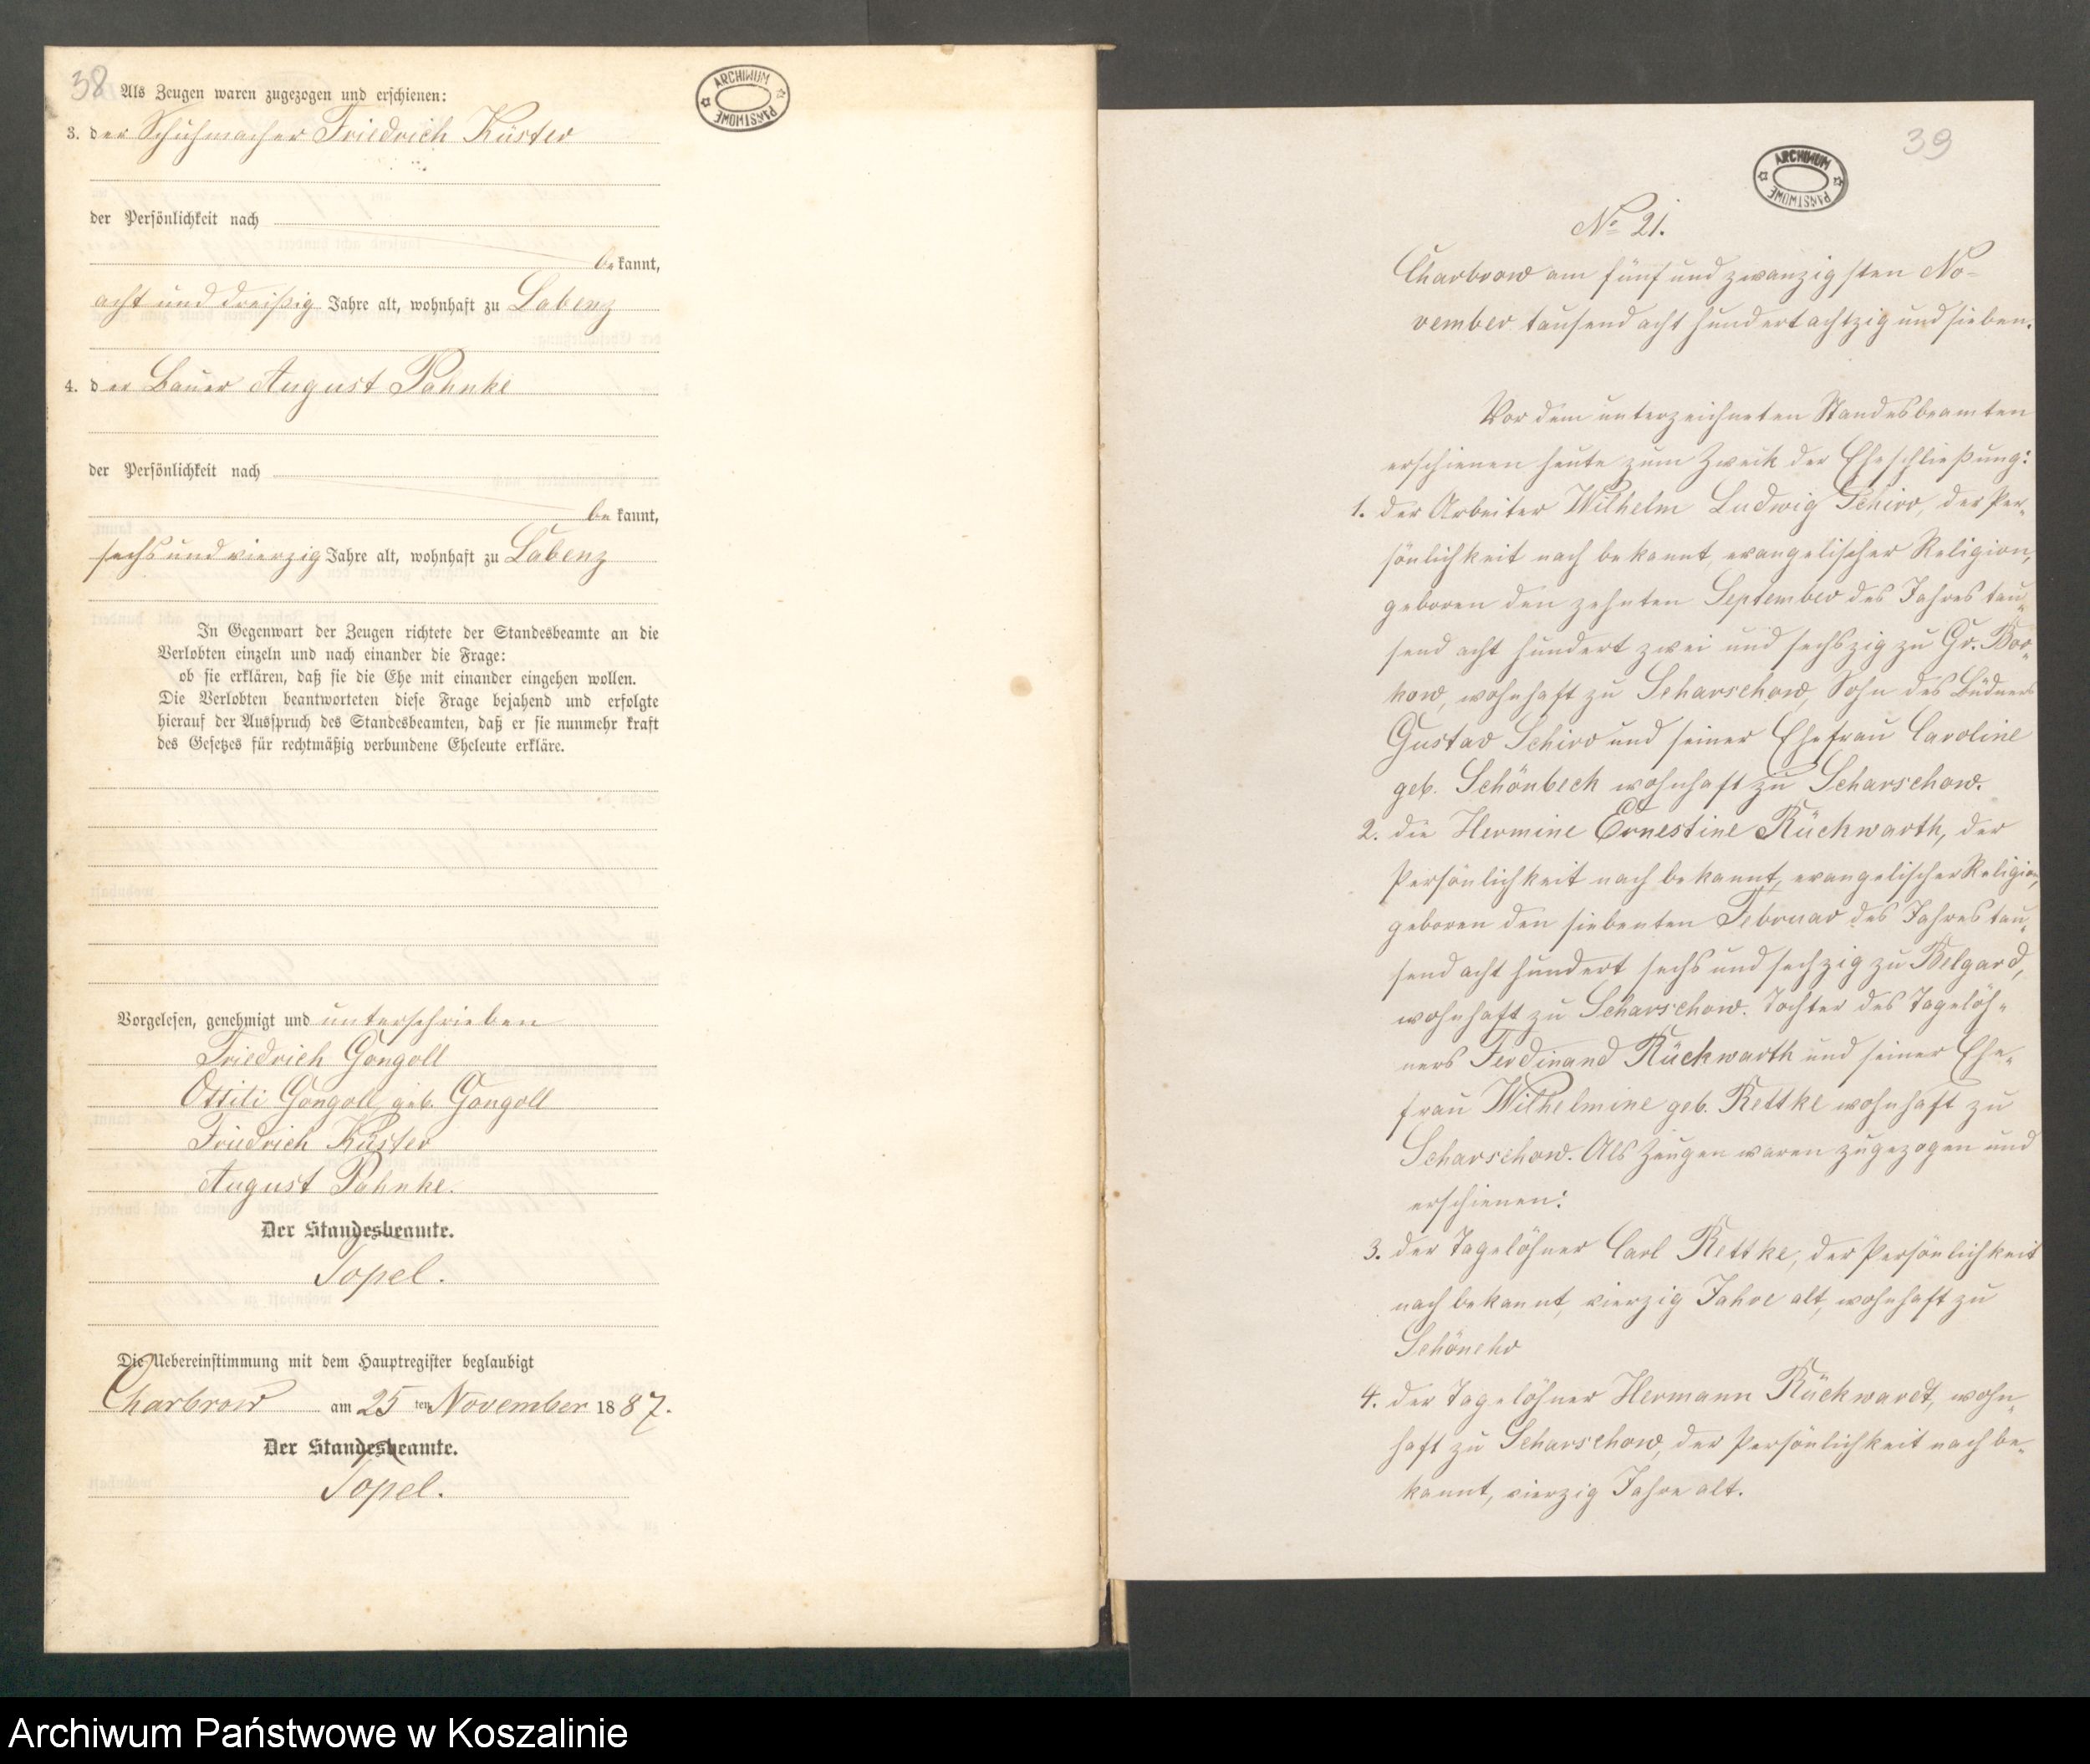 38
Als Zeugen waren zugezogen und erschienen:
ARCHIWUM PAŃSTWOWE
3. der Schuhmacher Friedrich Küster
der Persönlichkeit nach
bekannt,
acht und dreißig Jahre alt, wohnhaft zu Labenz
4. der Bauer August Pahnke
der Persönlichkeit nach
bekannt,
sechs und vierzig Jahre alt, wohnhaft zu Labenz
In Gegenwart der Zeugen richtete der Standesbeamte an die
Verlobten einzeln und nach einander die Frage:
ob sie erklären, daß sie die Ehe mit einander eingehen wollen.
Die Verlobten beantworteten diese Frage bejahend und erfolgte
hierauf der Ausspruch des Standesbeamten, daß er sie nunmehr kraft
des Gesetzes für rechtmäßig verbundene Eheleute erkläre.
Vorgelesen, genehmigt und unterschrieben
Friedrich Gongoll
Ottili Gongoll geb. Gongoll
Friedrich Küster
August Pahnke.
Der Standesbeamte.
Topel.
Die Uebereinstimmung mit dem Hauptregister beglaubigt
Charbrow am 25 ten November 1887.
Der Standesbeamte.
Topel.
39
ARCHIWUM PAŃSTWOWE
No 21.
Charbrow am fünf und zwanzigsten No-
vember tausend acht hundert achtzig und sieben.
Vor dem unterzeichneten Standesbeamten
erschienen heute zum Zweck der Eheschließung:
1. der Arbeiter Wilhelm Ludwig Schirr, der Per-
sönlichkeit nach bekannt, evangelischer Religion,
geboren den zehnten September des Jahres tau-
send acht hundert zwei und sechszig zu Gr. Bor-
kow, wohnhaft zu Scharschow, Sohn des Büdners
Gustav Schirr und seiner Ehefrau Caroline
geb. Schönbeck wohnhaft zu Scharschow.
2. die Hermine Ernestine Rückwarth, der
Persönlichkeit nach bekannt, evangelischer Religion,
geboren den siebenten Februar des Jahres tau-
send acht hundert sechs und sechzig zu Belgard,
wohnhaft zu Scharschow. Tochter des Tagelöh-
ners Ferdinand Rückwarth und seiner Ehe-
frau Wilhelmine geb. Rettke wohnhaft zu
Scharschow. Als Zeugen waren zugezogen und
erschienen:
3. der Tagelöhner Carl Rettke, der Persönlichkeit
nach bekannt, vierzig Jahre alt, wohnhaft zu
Schönehr
4. der Tagelöhner Hermann Rückwardt, wohn-
haft zu Scharschow, der Persönlichkeit nach be-
kannt, vierzig Jahre alt.
Archiwum Państwowe w Koszalinie